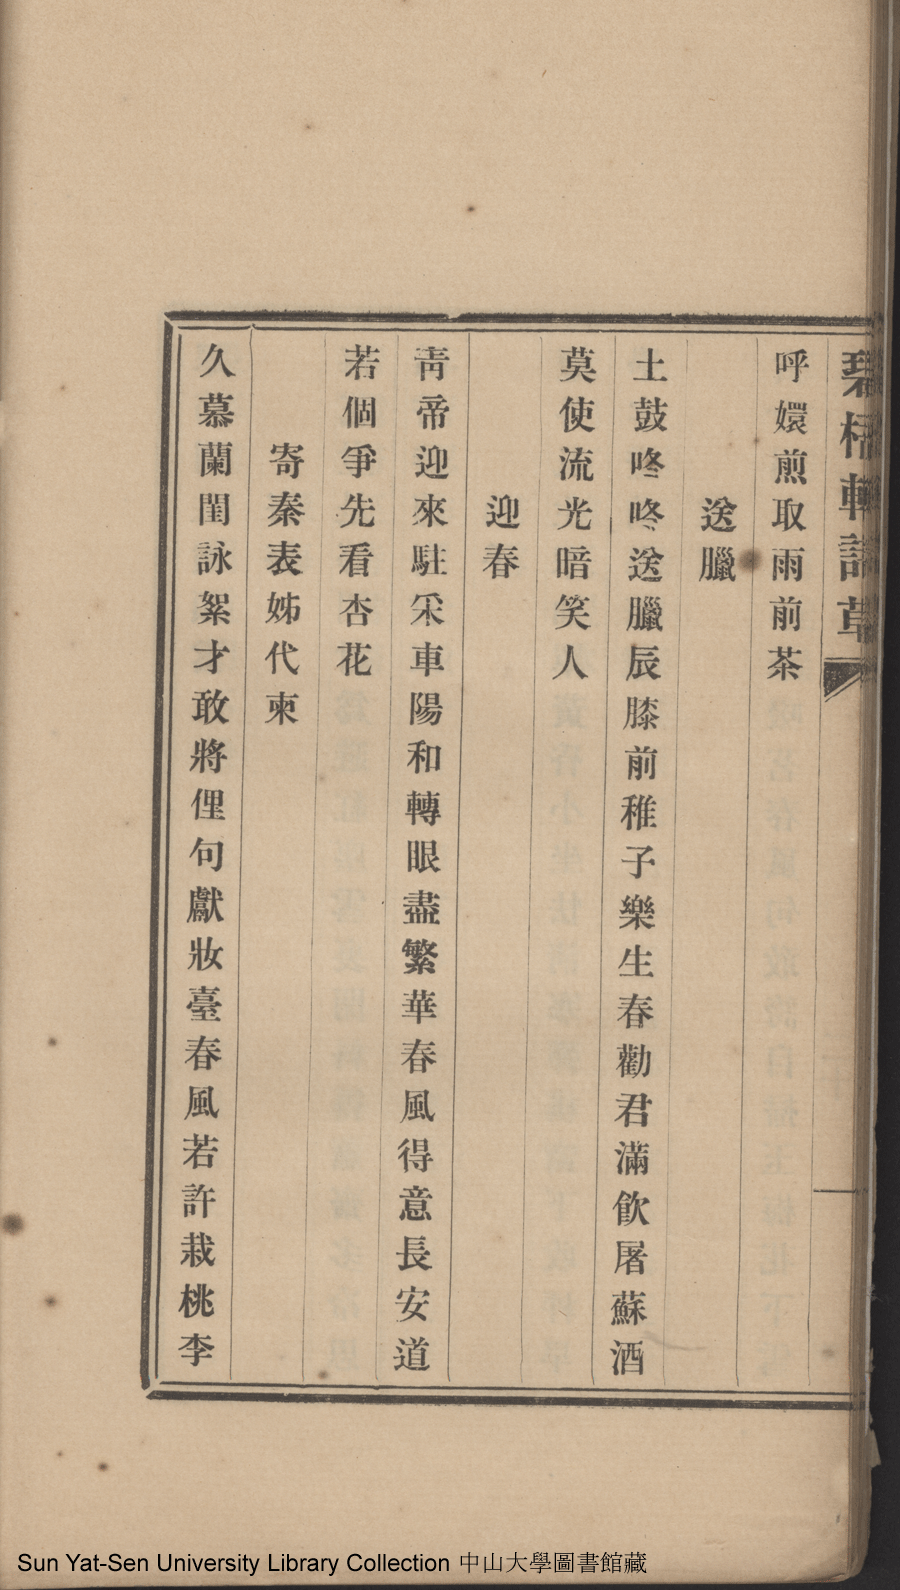 軒詩草
呼嬛煎取雨前茶
送臘
土鼓咚咚送臘辰膝前稚子樂生春勸君滿飲屠蘇酒
莫使流光暗笑人
迎春
靑帝迎來駐采車陽和轉眼盡繁華春風得意長安道
若個爭先看杏花
寄秦表姊代柬
久慕蘭閨詠絮才敢將俚句獻妝臺春風若許栽桃李
Sun Yat-Sen University Library Collection 中山大學圖書館藏